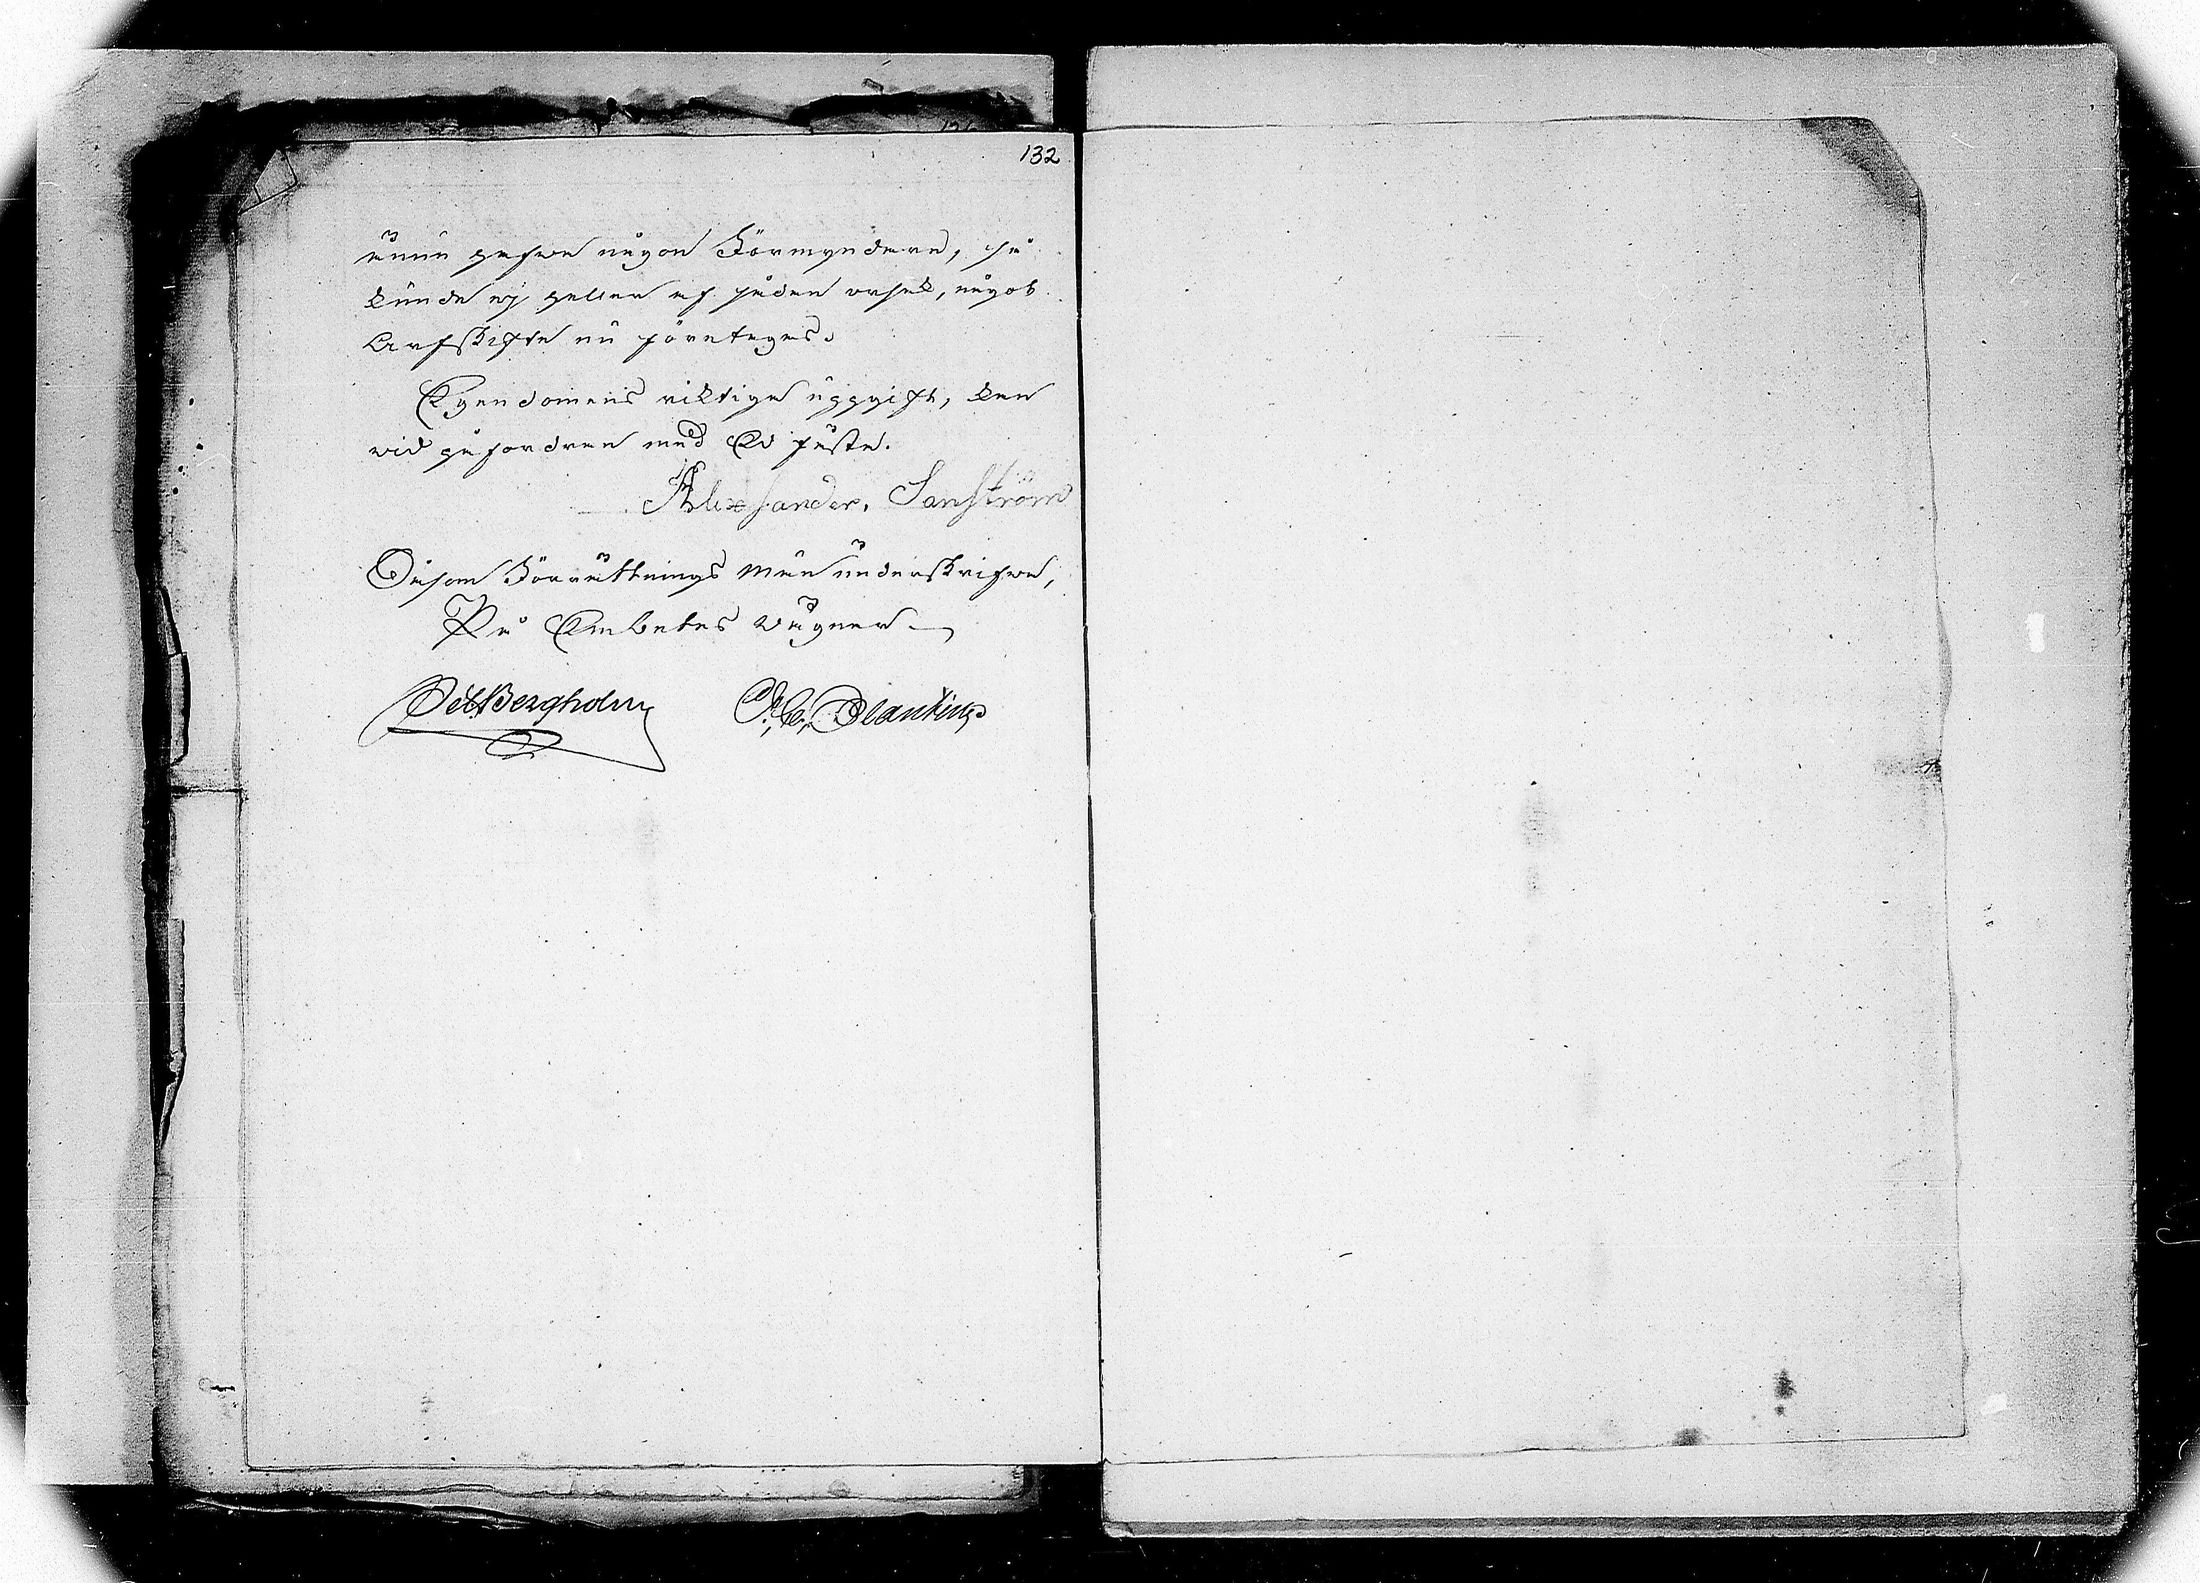 132
ännu hafwa någon Förmyndare, så
kunde ej heller af sådan orsak, något
Arfskifte nu företagas.
Egendomens riktiga uppgift, kan
wid påfordran med Ed fästa.
Alexsander. Sanström
Såsom Förrättnings män underskrifwa,
På Embetes wägnar
Bergholm Planting